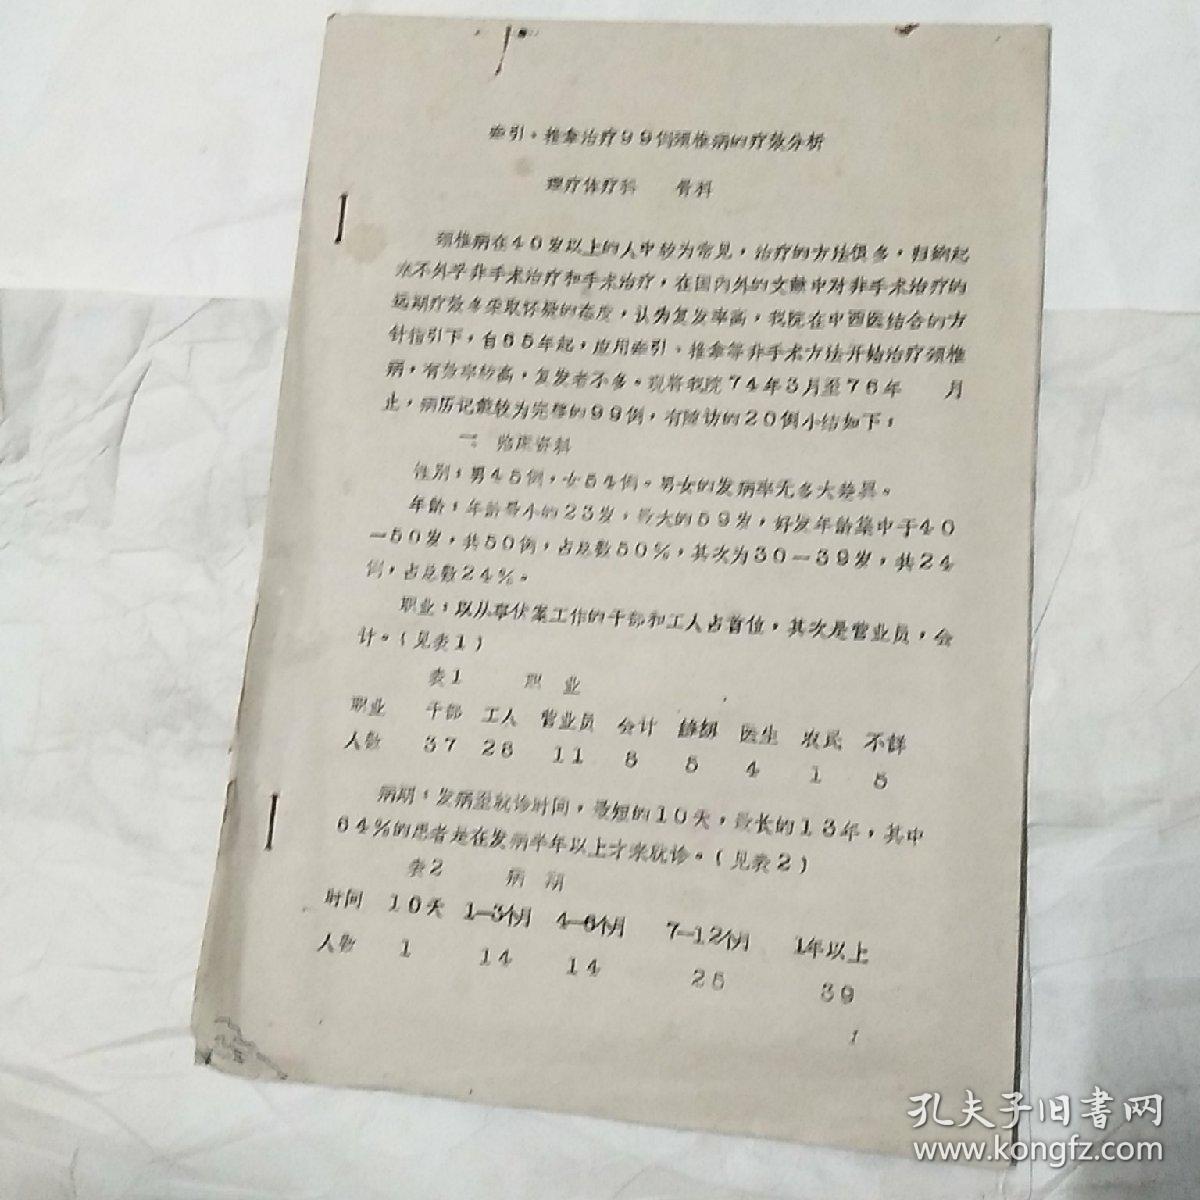 牵引、推拿治疗99例颈椎病的疗效分析
理疗体疗科 骨科
颈椎病在40岁以上的人中较为常见，治疗的方法很多，归纳起
来不外乎非手术治疗和手术治疗，在国内外的文献中对非手术治疗的
远期疗效多采取怀疑的态度，认为复发率高，我院在中西医结合的方
针指引下，自65年起，应用牵引、推拿等非手术方法开始治疗颈椎
病，有效率较高，复发者不多。现将我院74年3月至76年 月
止，病历记载较为完整的99例，有随访的20例小结如下：
一 临床资料
性别：男45例，女54例。男女的发病率无多大差异。
年龄：年龄最小的23岁，最大的59岁，好发年龄集中于40
—50岁，共50例，占总数50%，其次为30—39岁，共24
例，占总数24%。
职业：以从事伏案工作的干部和工人占首位，其次是营业员，会
计。（见表1）
表1 职 业
职业 干部 工人 营业员 会计 医生 农民 不详
人数 37 28 11 8 5 4 1 5
病期：发病至就诊时间，最短的10天，最长的13年，其中
64%的患者是在发病半年以上才来就诊。（见表2）
表2 病 期
时间 10天 1—3个月 4—6个月 7—12个月 1年以上
人数 1 14 14 25 39
1
孔夫子旧书网
www.kongfz.com